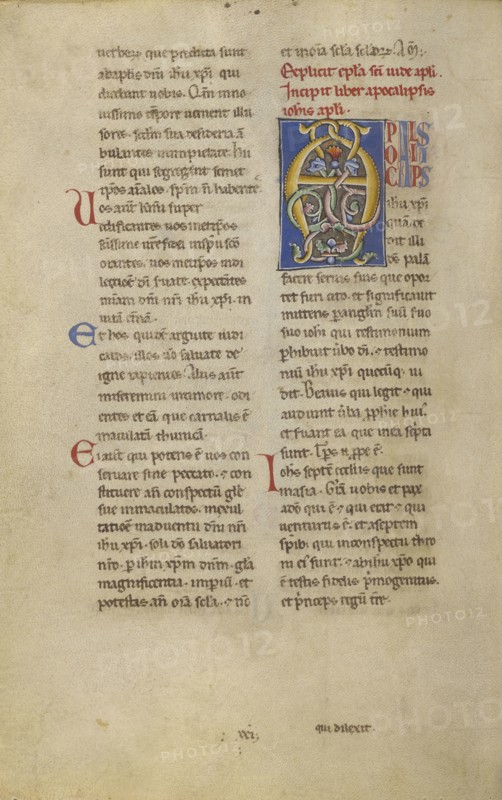 uerborum que predicta sunt
ab aplis dni ihu xpi qui
dicebant uobis. Qm in no
uissimo tempore uenient illu
sores. scdm sua desideria a
bulantes in impietate. hii
sunt qui segregant semet
ipsos aiales. spm n habentes
Uos aut kmi super
edificantes uos metipsos
ure fidei. in spu sco
orantes. uos metipsos in di
lectioe di seruate. expectantes
miam dni nri ihu xpi. in
uita etna.
Et hos quide arguite iudi
catos. illos uo saluate de
igne rapientes. Aliis aut
miseremini in timore. odi
entes et ea que carnalis e
maculata tunica.
Ei aut qui potens e uos con
seruare sine peccato. et con
stituere an conspectu gle
sue immaculatos. in exul
tatioe in aduentu dni nri
ihu xpi. soli deo saluatori
nro. p ihm xpm dnm. gla
magnificentia. imperiu. et
potestas. an oia scla. et nc
et in oia scla sclorum. Am.
Explicit epla sci iude apli.
Incipit liber apocalipsis
iohis apli.
APOCALIPSIS
ihu xpi
qua de
dit illi
ds pala
facere seruis suis que opor
tet fieri cito. et significauit
mittens p anglm suu seruo
suo iohi qui testimonium
phibuit ubo di. et testimo
niu ihu xpi quecuq. ui
dit. Beatus qui legit et qui
audiunt uba pphie hui
et seruant ea que in ea scpta
sunt. Tps n ppe e.
Iohs septe ecclis que sunt
in asia. Gra uobis et pax
ab eo qui e et qui erat et qui
uenturus e. et a septem
spib. qui in conspectu thro
ni ei sunt. et ab ihu xpo qui
e testis fidelis pmogenitus.
et pnceps regu tre.
qui dilexit.
PHOTO12